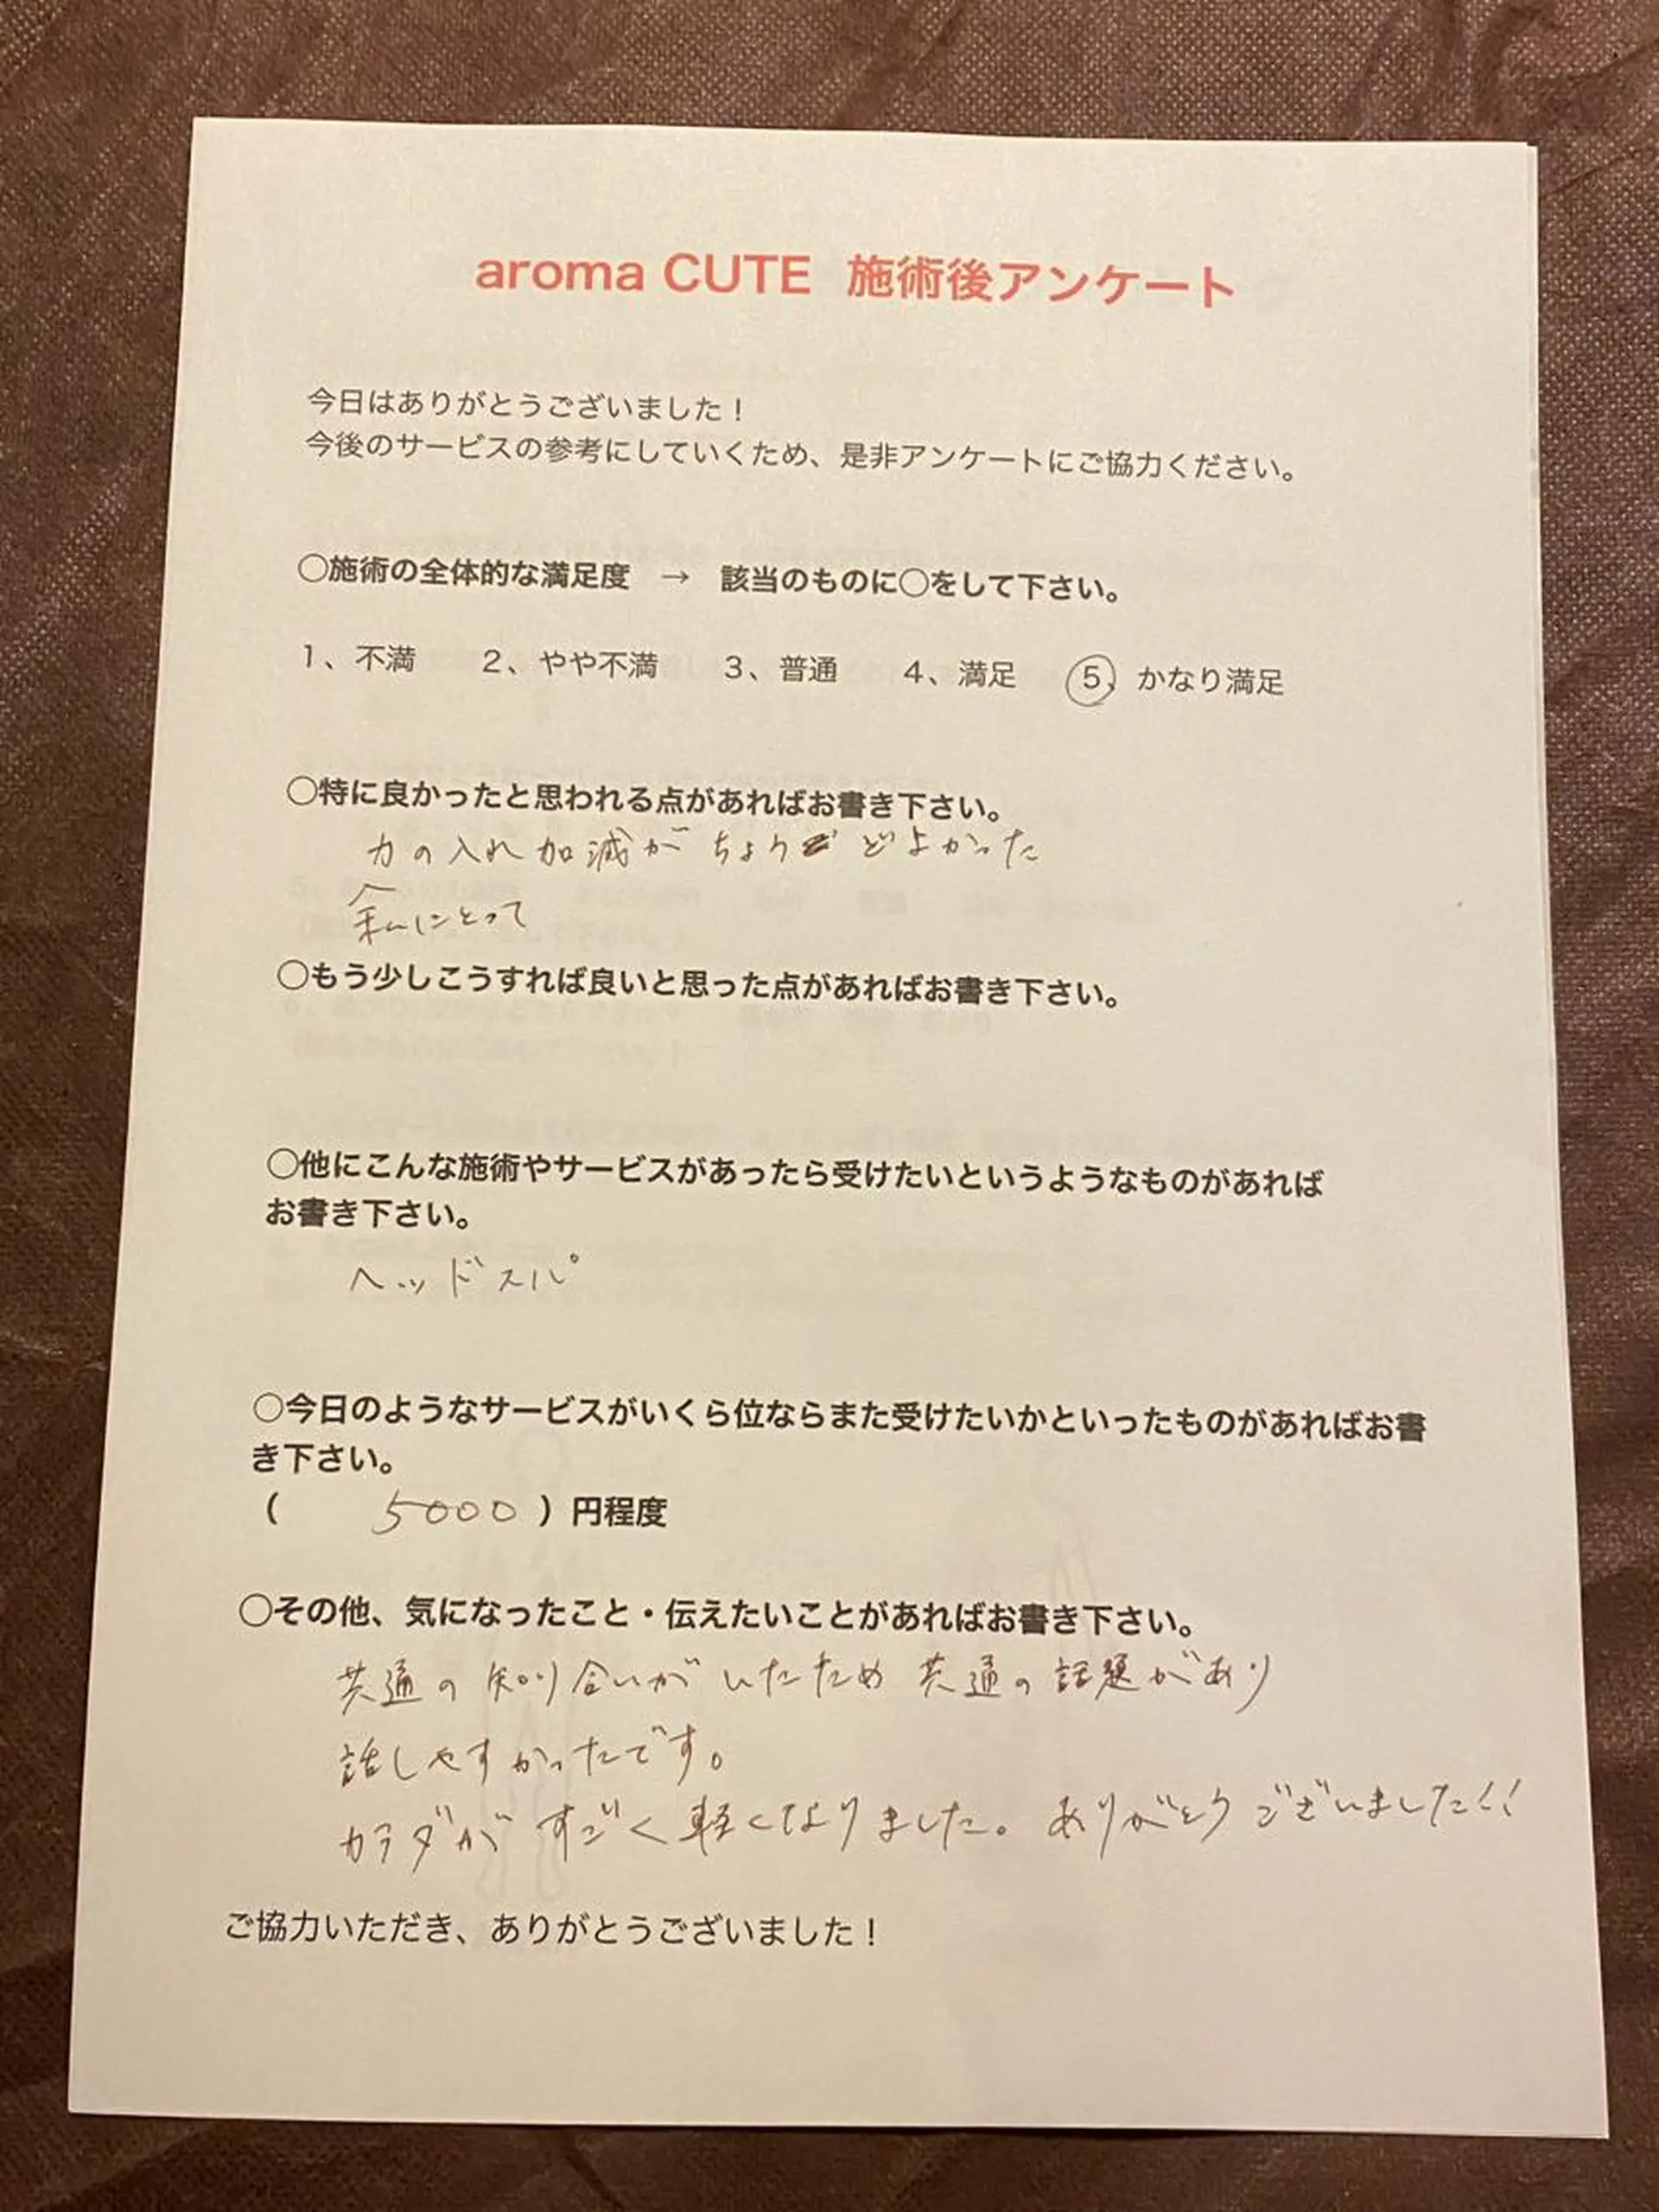 aroma CUTE 施術後アンケート
今日はありがとうございました！
今後のサービスの参考にしていくため、是非アンケートにご協力ください。
○施術の全体的な満足度 → 該当のものに○をして下さい。
1、不満 2、やや不満 3、普通 4、満足 5、かなり満足
○特に良かったと思われる点があればお書き下さい。
力の入れ加減がちょうどよかった
私にとって
○もう少しこうすれば良いと思った点があればお書き下さい。
○他にこんな施術やサービスがあったら受けたいというようなものがあれば
お書き下さい。
ヘッドスパ
○今日のようなサービスがいくら位ならまた受けたいかといったものがあればお書
き下さい。
( 5000 ) 円程度
○その他、気になったこと・伝えたいことがあればお書き下さい。
共通の知り合いがいたため共通の話題があり
話しやすかったです。
カラダがすごく軽くなりました。ありがとうございました!!
ご協力いただき、ありがとうございました！